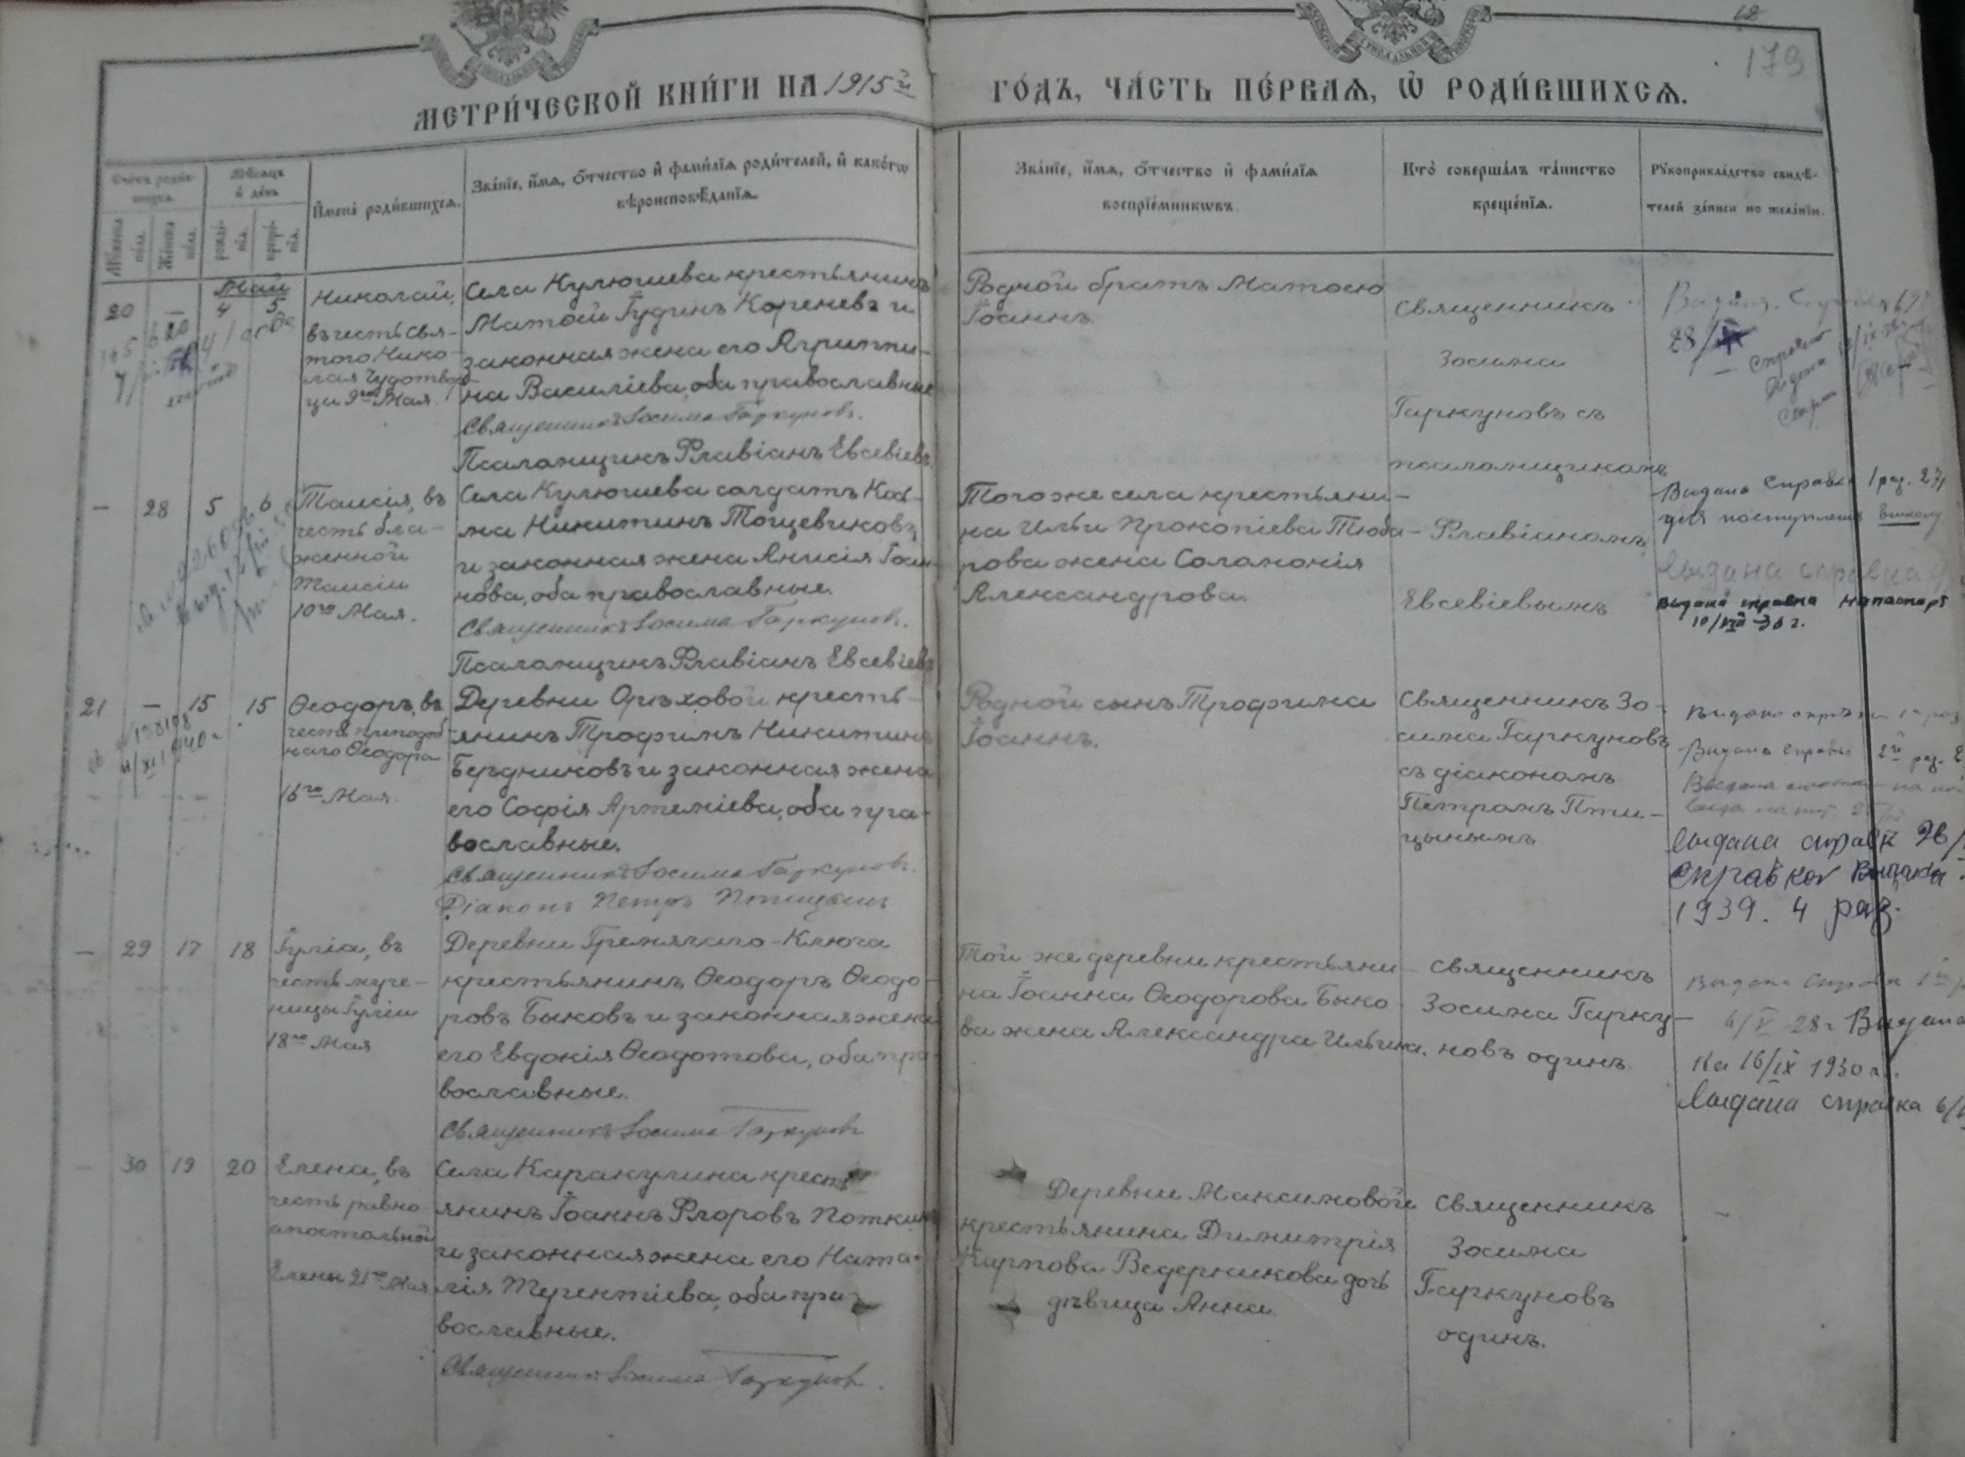 12
179
МЕТРИ́ЧЕСКОЙ КНИ́ГИ НА 1915й ГО́ДЪ, ЧА́СТЬ ПЕ́РВАѦ, Ѡ҆ РОДИ́ВШИХСѦ.
Сче́тъ роди́вшихсѧ.
Мꙋ́жеска по́ла.
Же́нска по́ла.
Мѣ́сѧцъ и҆ де́нь
рожде́нїѧ.
креще́нїѧ.
И҆мена̀ роди́вшихсѧ.
Зва́нїе, и҆́мѧ, ѻ҆́тчество и҆ фами́лїѧ роди́телей, и҆ како́гѡ
вѣроисповѣ́данїѧ.
Зва́нїе, и҆́мѧ, ѻ҆́тчество и҆ фами́лїѧ
воспрїе́мникѡвъ.
Кто̀ соверша́лъ та́инство
креще́нїѧ.
Рꙋкоприкла́дство свидѣ́-
телей за́писи по жела́нїю.
Май
20 — 4 5
Николай,
въ честь Свя-
того Нико-
лая Чудотвор-
ца 9го Мая.
Села Кулюшева крестьянинъ
Матѳей Іудинъ Кореневъ и
законная жена его Агриппи-
на Василіева, оба православные
Священникъ Зосима Гаркуновъ.
Псаломщикъ Флавіанъ Евсевіевъ
Родной братъ Матѳею
Іоаннъ.
Священникъ
Зосима
Гаркуновъ съ
псаломщикомъ
Флавіаномъ
Евсевіевымъ
— 28 5 6
Таисія, въ
честь бла-
женной
Таисіи
10го Мая.
Села Кулюшева солдатъ Коз-
ма Никитинъ Тощевиковъ
и законная жена Анисія Іоан-
нова, оба православные.
Священникъ Зосима Гаркуновъ.
Псаломщикъ Флавіанъ Евсевіевъ
Того же села крестьяни-
на Ильи Прокопіева Тюба-
рова жена Соломонія
Александрова.
Выдана справка 1 раз. 27
для поступления в школу
Выдана справка
Выдана справка на паспорт
10/VIII-36 г.
21 — 15 15
Ѳеодоръ, въ
честь преподоб-
наго Ѳеодора
16го Мая.
Деревни Орѣховой кресть-
янинъ Трофимъ Никитинъ
Бердниковъ и законная жена
его Софія Артеміева, оба пра-
вославные.
Священникъ Зосима Гаркуновъ.
Діаконъ Петръ Птицынъ
Родной сынъ Трофима
Іоаннъ.
Священникъ Зо-
сима Гаркуновъ
съ діакономъ
Петромъ Пти-
цынымъ
Выдана справка 1 раз
Выдана справка 2й раз.
Выдана справк 26/
Справкой Выдана
1939. 4 раз.
— 29 17 18
Іулія, въ
честь муче-
ницы Іуліи
18го Мая
Деревни Гремячаго-Ключа
крестьянинъ Ѳеодоръ Ѳеодо-
ровъ Быковъ и законная жена
его Евдокія Ѳеодотова, оба пра-
вославные.
Священникъ Зосима Гаркуновъ
Той же деревни крестьяни-
на Іоанна Ѳеодорова Быко-
ва жена Александра Ильина.
Священникъ
Зосима Гарку-
новъ одинъ
Выдана справка 1й
6/V 28 г Выдана
ка 16/IX 1930 г.
Выдана справка 6/
— 30 19 20
Елена, въ
честь равно-
апостольной
Елены 21го Мая
Села Каракулина кресть-
янинъ Іоаннъ Флоровъ Поткинъ
и законная жена его Ната-
лія Терентіева, оба пра-
вославные.
Священникъ Зосима Гаркуновъ.
Деревни Максимовой
крестьянина Димитрія
Карпова Ведерникова дочь
дѣвица Анна.
Священникъ
Зосима
Гаркуновъ
одинъ.